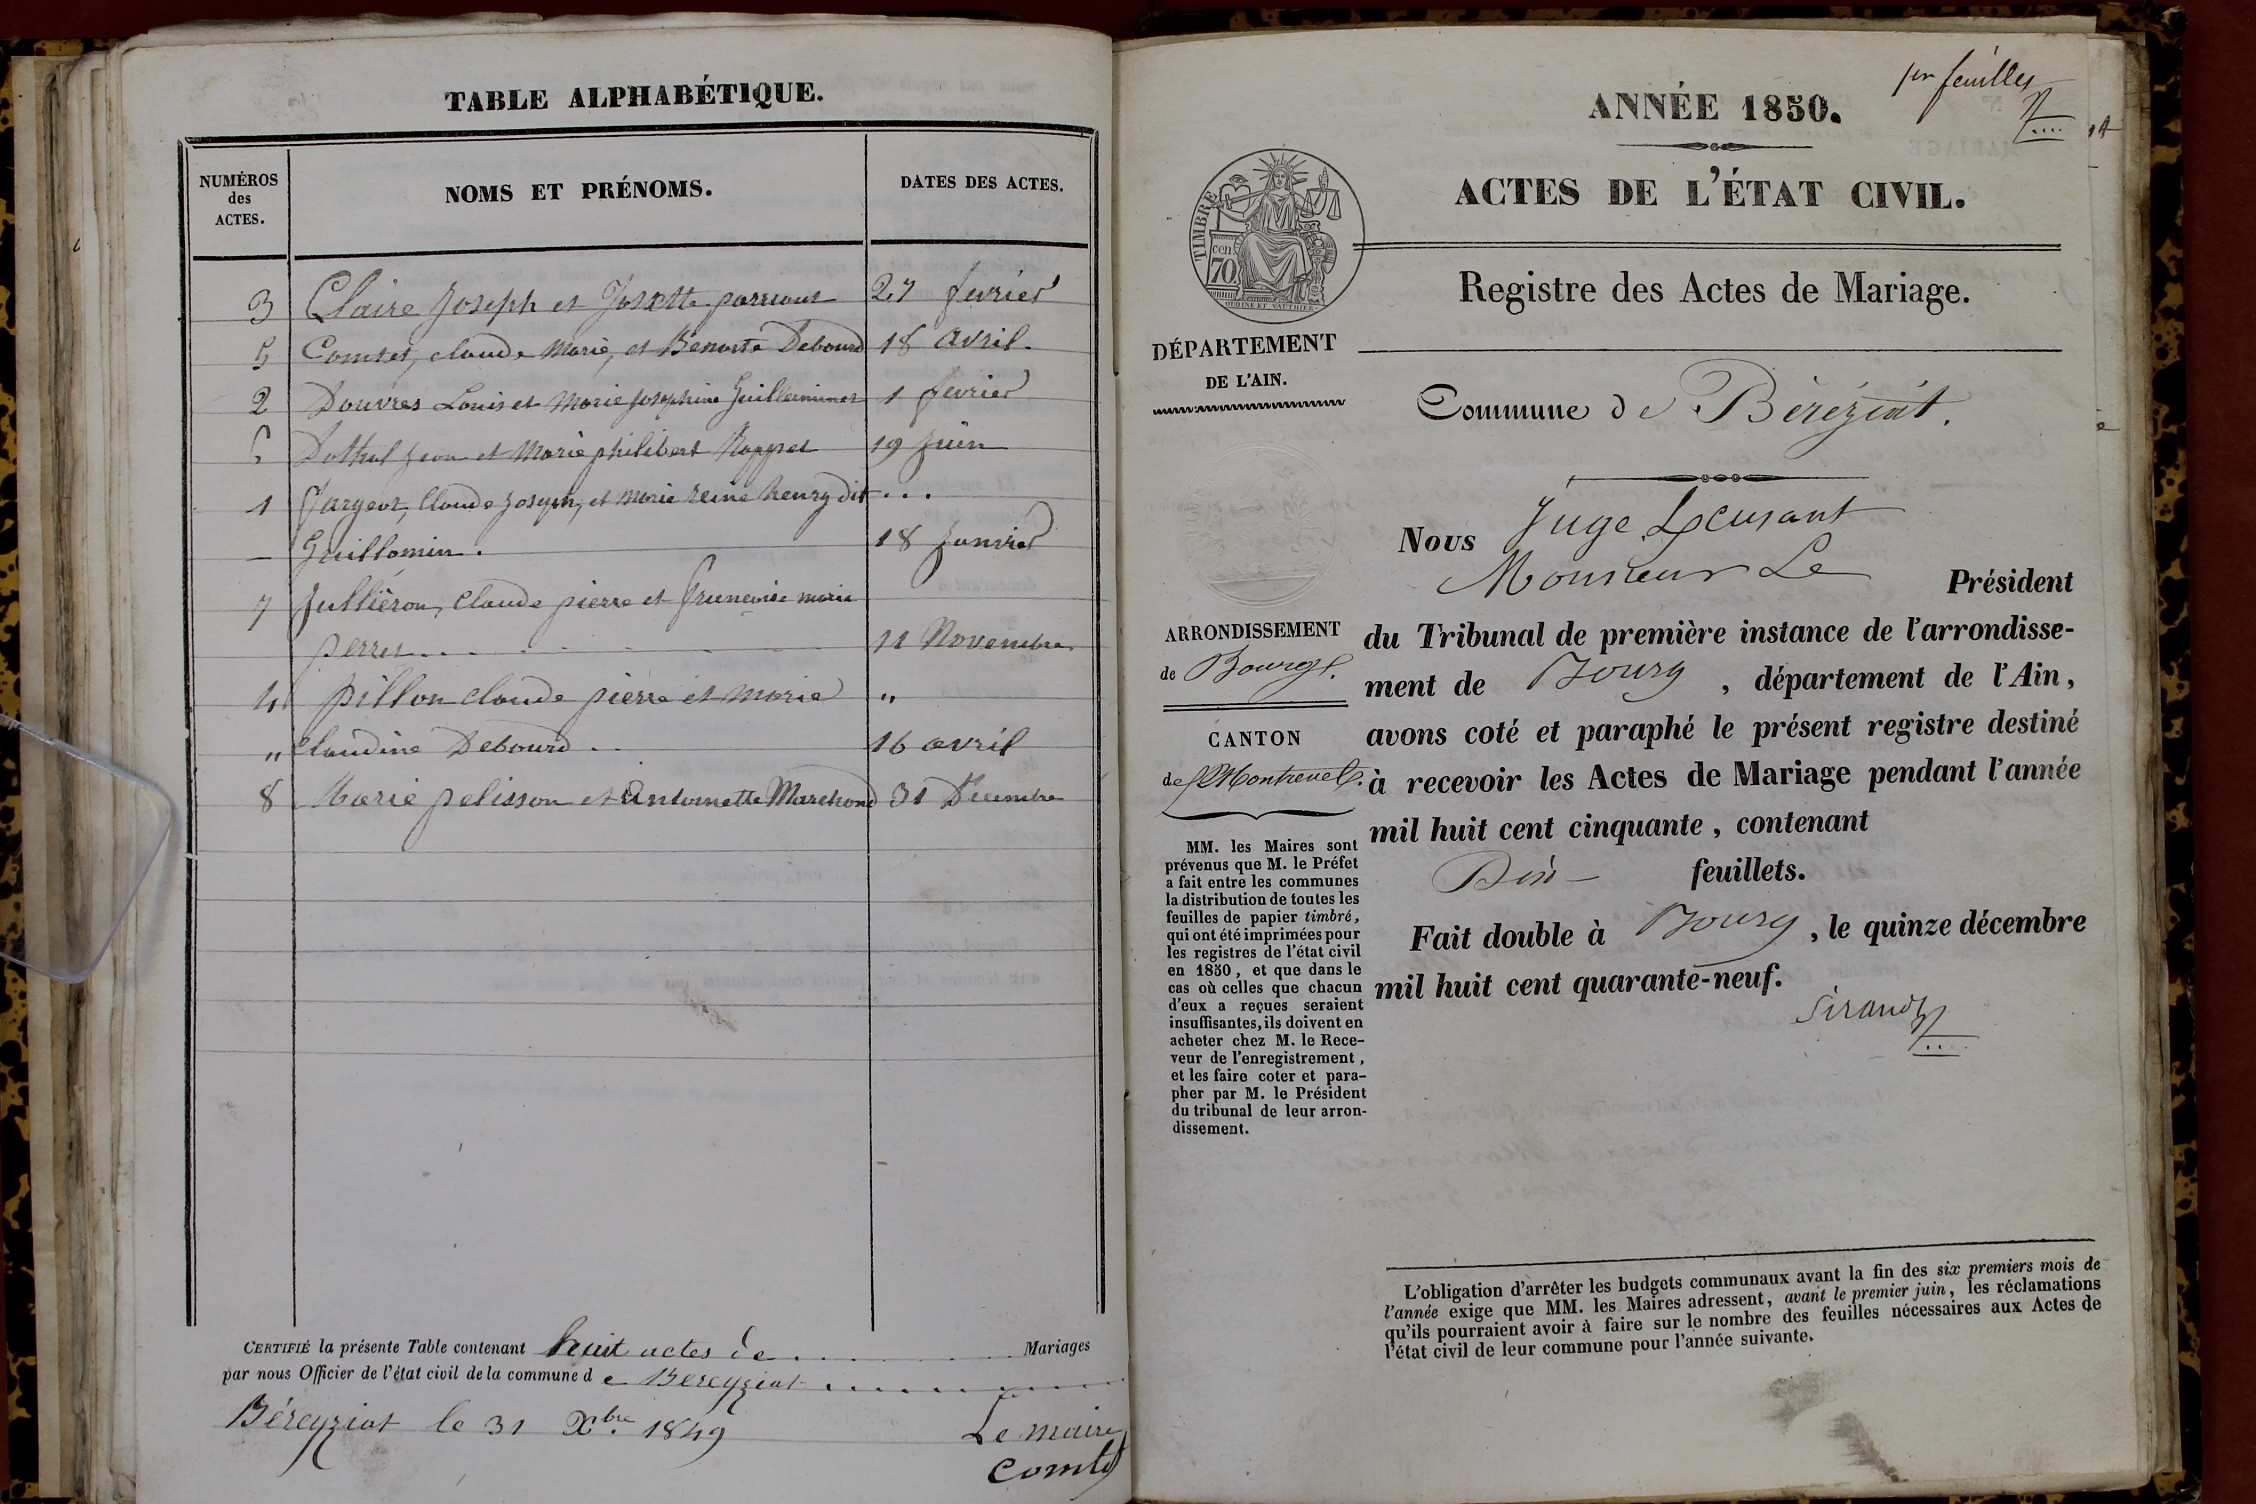 TABLE ALPHABÉTIQUE.
NUMÉROS
des
ACTES.
NOMS ET PRÉNOMS.
DATES DES ACTES.
3 Claire Joseph et Josette 27 fevrier
5 Comtet, claude Marie, et Benoite Debourd 18 avril.
2 Douvres Louis et Marie Josephine Guilleminet 1 fevrier
6 Dothal Jean et Marie philibert 19 Juin
1 Fargeot, Claude Joseph, et Marie reine henry dit ...
— Guillomin. 18 Janvier
7 Jullièron, Claude pierre et francoise marie
perret 11 Novembre.
4 pillon claude pierre et marie "
" claudine Debourd .. 16 avril
8 Marie pelisson et Antoinette Marchand 31 Décembre
CERTIFIÉ la présente Table contenant huit actes de Mariages
par nous Officier de l'état civil de la commune de Bereyziat
Béreyziat le 31 Xbre. 1849
Le maire
Comtet
1er feuillet
ANNÉE 1850.
ACTES DE L'ÉTAT CIVIL.
TIMBRE
70 cen
OUDINE ET VAUTHIER
Registre des Actes de Mariage.
DÉPARTEMENT
DE L'AIN.
Commune de Béréziat.
Nous Juge
Monsieur Le Président
ARRONDISSEMENT
de Bourg.
CANTON
de Montrevel.
du Tribunal de première instance de l'arrondisse-
ment de Bourg, département de l'Ain,
avons coté et paraphé le présent registre destiné
à recevoir les Actes de Mariage pendant l'année
mil huit cent cinquante, contenant
Dix feuillets.
Fait double à Bourg, le quinze décembre
mil huit cent quarante-neuf.
Sirand
MM. les Maires sont
prévenus que M. le Préfet
a fait entre les communes
la distribution de toutes les
feuilles de papier timbré,
qui ont été imprimées pour
les registres de l'état civil
en 1850, et que dans le
cas où celles que chacun
d'eux a reçues seraient
insuffisantes, ils doivent en
acheter chez M. le Rece-
veur de l'enregistrement,
et les faire coter et para-
pher par M. le Président
du tribunal de leur arron-
dissement.
L'obligation d'arrêter les budgets communaux avant la fin des six premiers mois de
l'année exige que MM. les Maires adressent, avant le premier juin, les réclamations
qu'ils pourraient avoir à faire sur le nombre des feuilles nécessaires aux Actes de
l'état civil de leur commune pour l'année suivante.